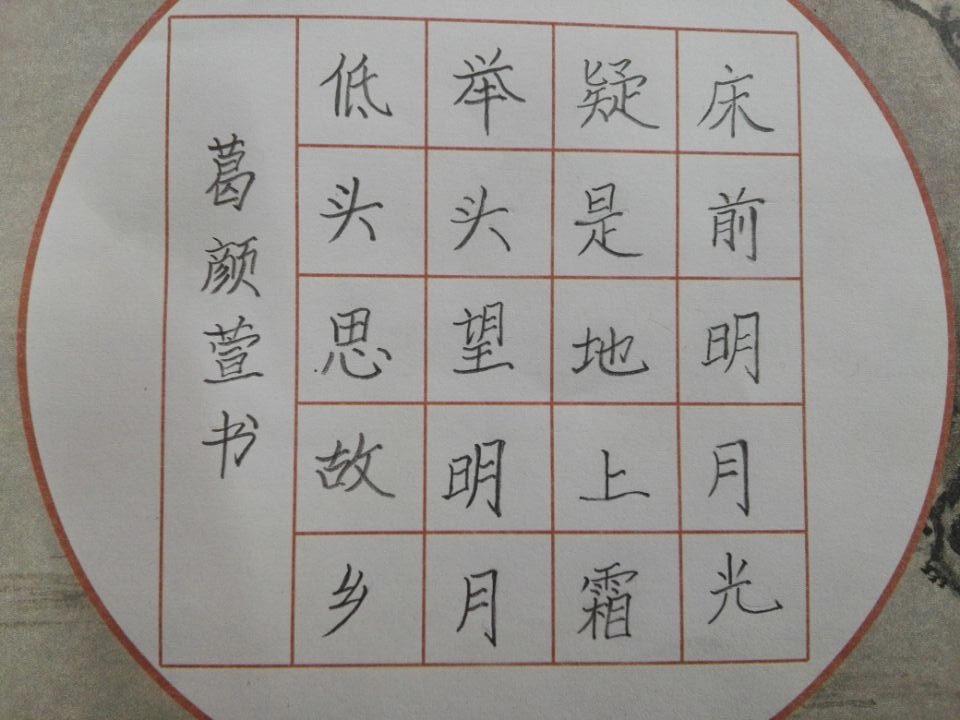 床前明月光
疑是地上霜
举头望明月
低头思故乡
葛颜萱书